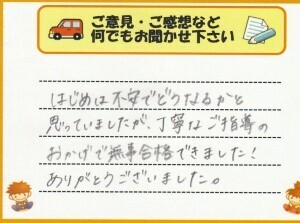 ご意見・ご感想など
何でもお聞かせ下さい
はじめは不安でどうなるかと
思っていましたが、丁寧なご指導の
おかげで無事合格できました!
ありがとうございました。